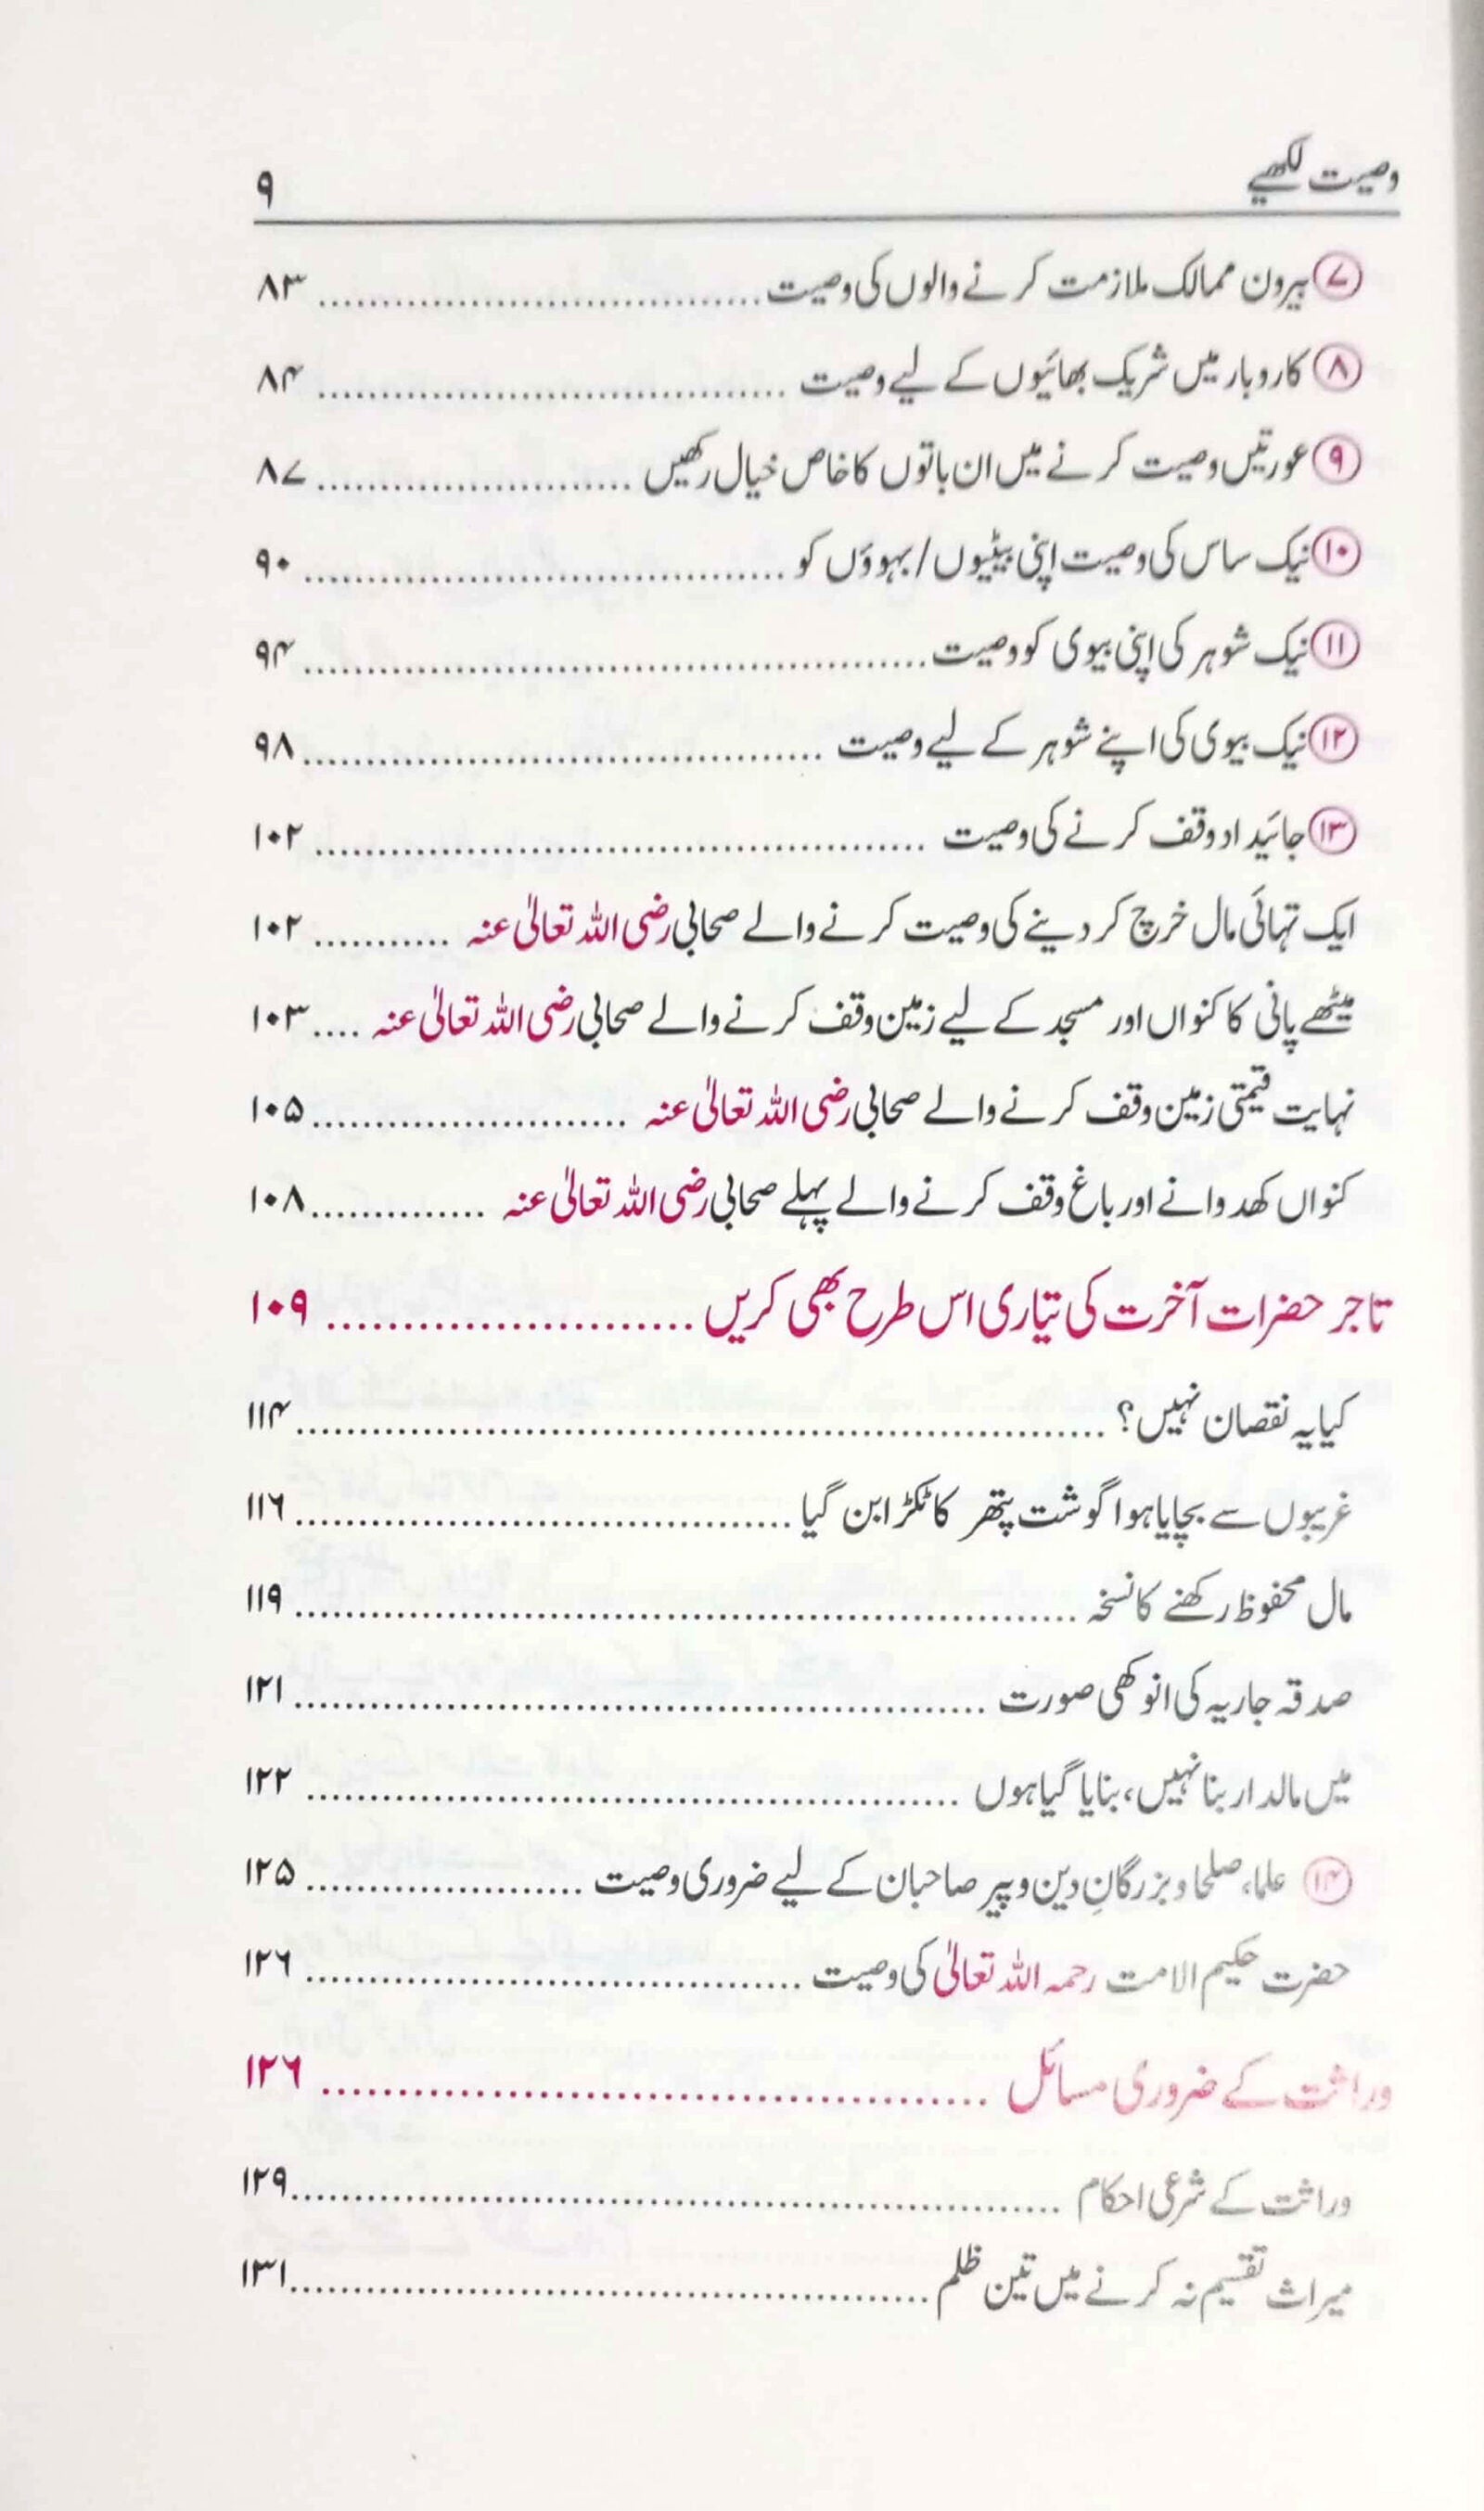 وصیت لکھیے ۹
⑦ بیرون ممالک ملازمت کرنے والوں کی وصیت ................................... ۸۳
⑧ کاروبار میں شریک بھائیوں کے لیے وصیت ..................................... ۸۴
⑨ عورتیں وصیت کرنے میں ان باتوں کا خاص خیال رکھیں ......................... ۸۷
⑩ نیک ساس کی وصیت اپنی بیٹیوں/بہوؤں کو ...................................... ۹۰
⑪ نیک شوہر کی اپنی بیوی کو وصیت ................................................. ۹۴
⑫ نیک بیوی کی اپنے شوہر کے لیے وصیت ......................................... ۹۸
⑬ جائیداد وقف کرنے کی وصیت ................................................ ۱۰۲
ایک تہائی مال خرچ کر دینے کی وصیت کرنے والے صحابی رضی اللہ تعالیٰ عنہ ........... ۱۰۲
میٹھے پانی کا کنواں اور مسجد کے لیے زمین وقف کرنے والے صحابی رضی اللہ تعالیٰ عنہ .... ۱۰۳
نہایت قیمتی زمین وقف کرنے والے صحابی رضی اللہ تعالیٰ عنہ ......................... ۱۰۵
کنواں کھدوانے اور باغ وقف کرنے والے پہلے صحابی رضی اللہ تعالیٰ عنہ .............. ۱۰۸
تاجر حضرات آخرت کی تیاری اس طرح بھی کریں ......................... ۱۰۹
کیا یہ نقصان نہیں؟ ................................................................ ۱۱۴
غریبوں سے بچایا ہوا گوشت پتھر کا ٹکڑا بن گیا ....................................... ۱۱۶
مال محفوظ رکھنے کا نسخہ .............................................................. ۱۱۹
صدقہ جاریہ کی انوکھی صورت ....................................................... ۱۲۱
میں مالدار بنا نہیں، بنایا گیا ہوں .................................................... ۱۲۲
⑭ علما، صلحا و بزرگانِ دین و پیر صاحبان کے لیے ضروری وصیت ...................... ۱۲۵
حضرت حکیم الامت رحمہ اللہ تعالیٰ کی وصیت ....................................... ۱۲۶
وراثت کے ضروری مسائل ............................................. ۱۲۶
وراثت کے شرعی احکام ............................................................. ۱۲۹
میراث تقسیم نہ کرنے میں تین ظلم ................................................... ۱۳۱